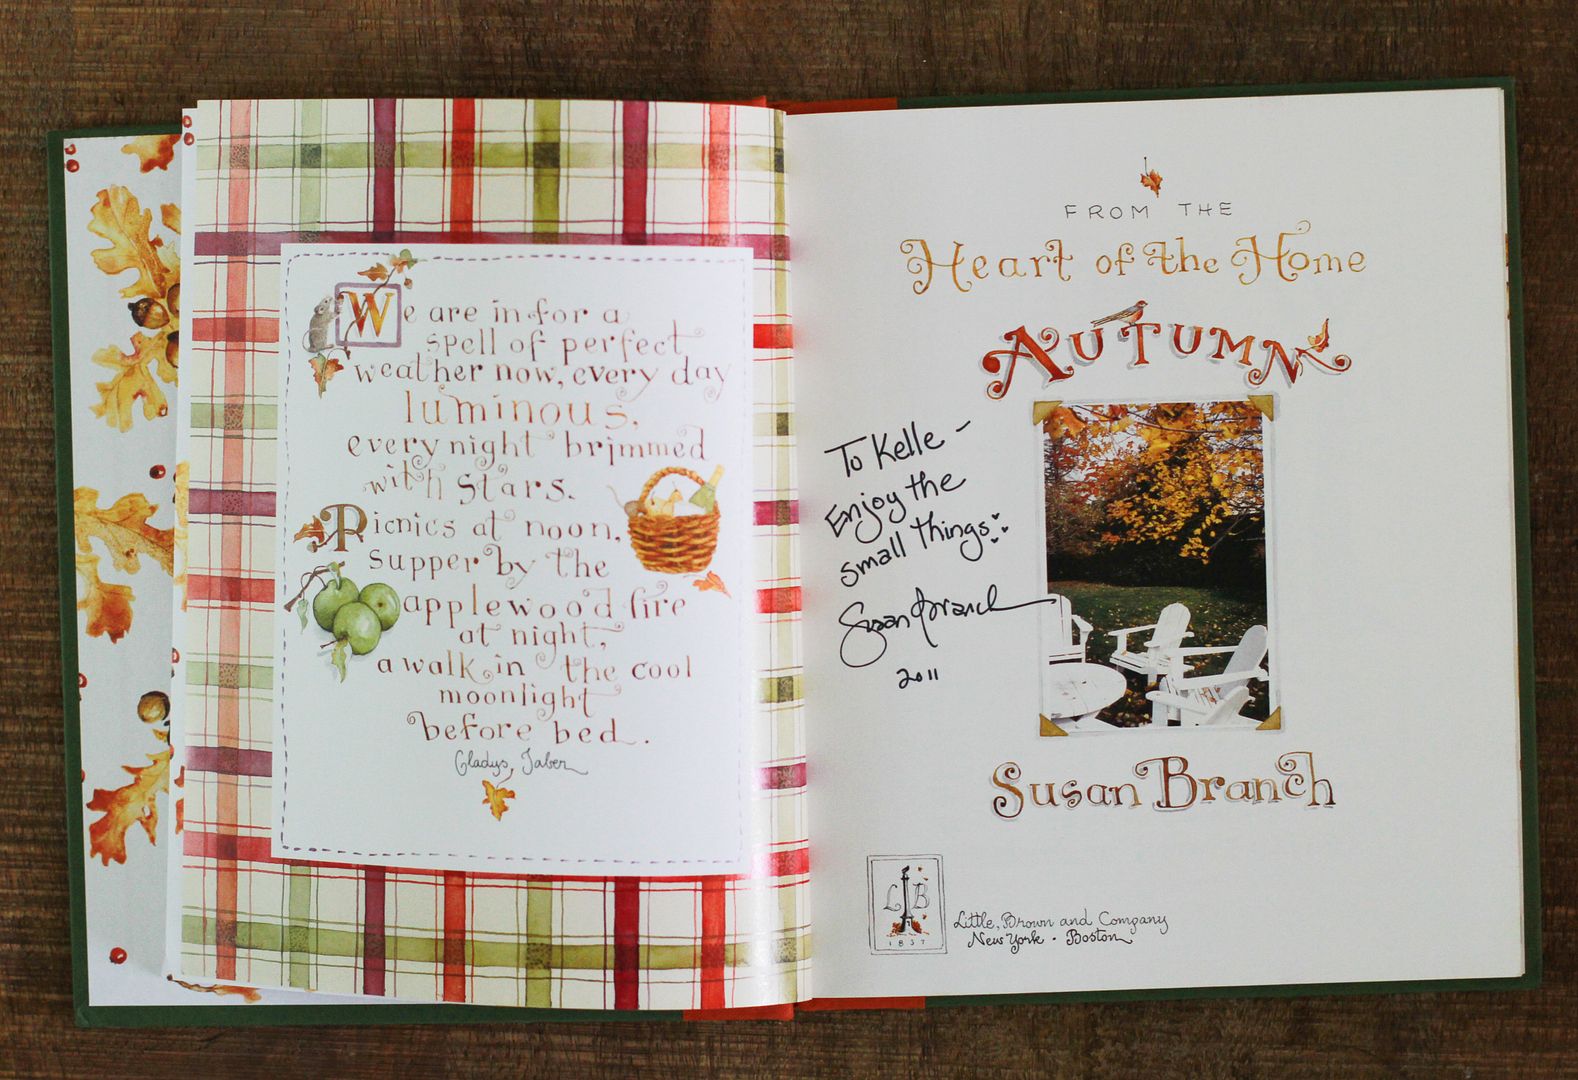 We are in for a
spell of perfect
weather now, every day
luminous,
every night brimmed
with stars.
Picnics at noon,
supper by the
applewood fire
at night,
a walk in the cool
moonlight
before bed.
Gladys Taber
FROM THE
Heart of the Home
AUTUMN
To Kelle -
Enjoy the
small things
Susan Branch
2011
Susan Branch
L B
1837
Little, Brown and Company
New York · Boston